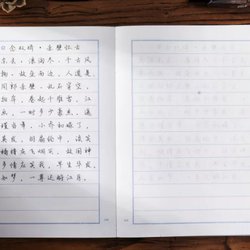 念奴娇·赤壁怀古
东去，浪淘尽，千古风
物。故垒西边，人道是
周郎赤壁。乱石穿空，
拍岸，卷起千堆雪。江
画，一时多少豪杰。遥
瑾当年，小乔初嫁了，
英发。羽扇纶巾，谈笑
樯橹灰飞烟灭。故国神
多情应笑我，早生华发。
如梦，一尊还酹江月。